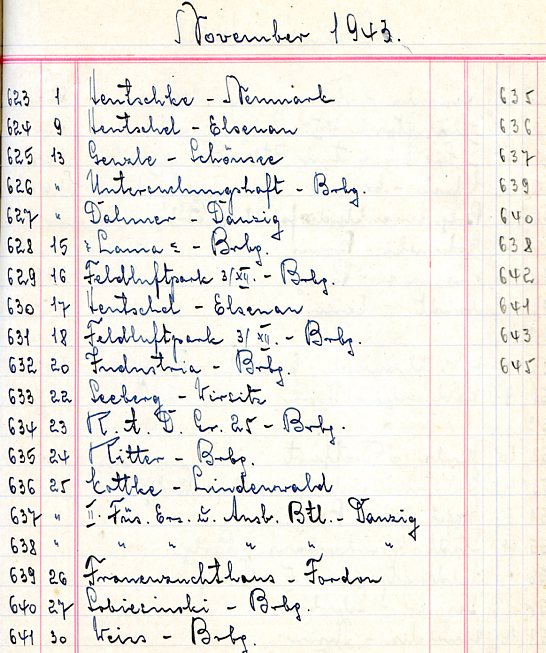 November 1943.
623 1 Hentschke - Neumark 635
624 9 Hentschel - Elsenau 636
625 13 - Schönsee 637
626 " Untersuchungshaft - Brbg. 639
627 " Dahmer - Danzig 640
628 15 "Lama" - Brbg. 638
629 16 Feldluftpark 3/XII. - Brbg. 642
630 17 Hentschel - Elsenau 641
631 18 Feldluftpark 3/XII. - Brbg. 643
632 20 Industria - Brbg. 645
633 22 Seeberg - Wirsitz
634 23 R. t. D. Er. 25 - Brbg.
635 24 Ritter - Brbg.
636 25 Kottke - Lindenwald
637 " II. Füs. Ers. u. Ausb. Btl. - Danzig
638 " " " " " "
639 26 Frauenzuchthaus - Fordon
640 27 Sobiezinski - Brbg.
641 30 Weiss - Brbg.